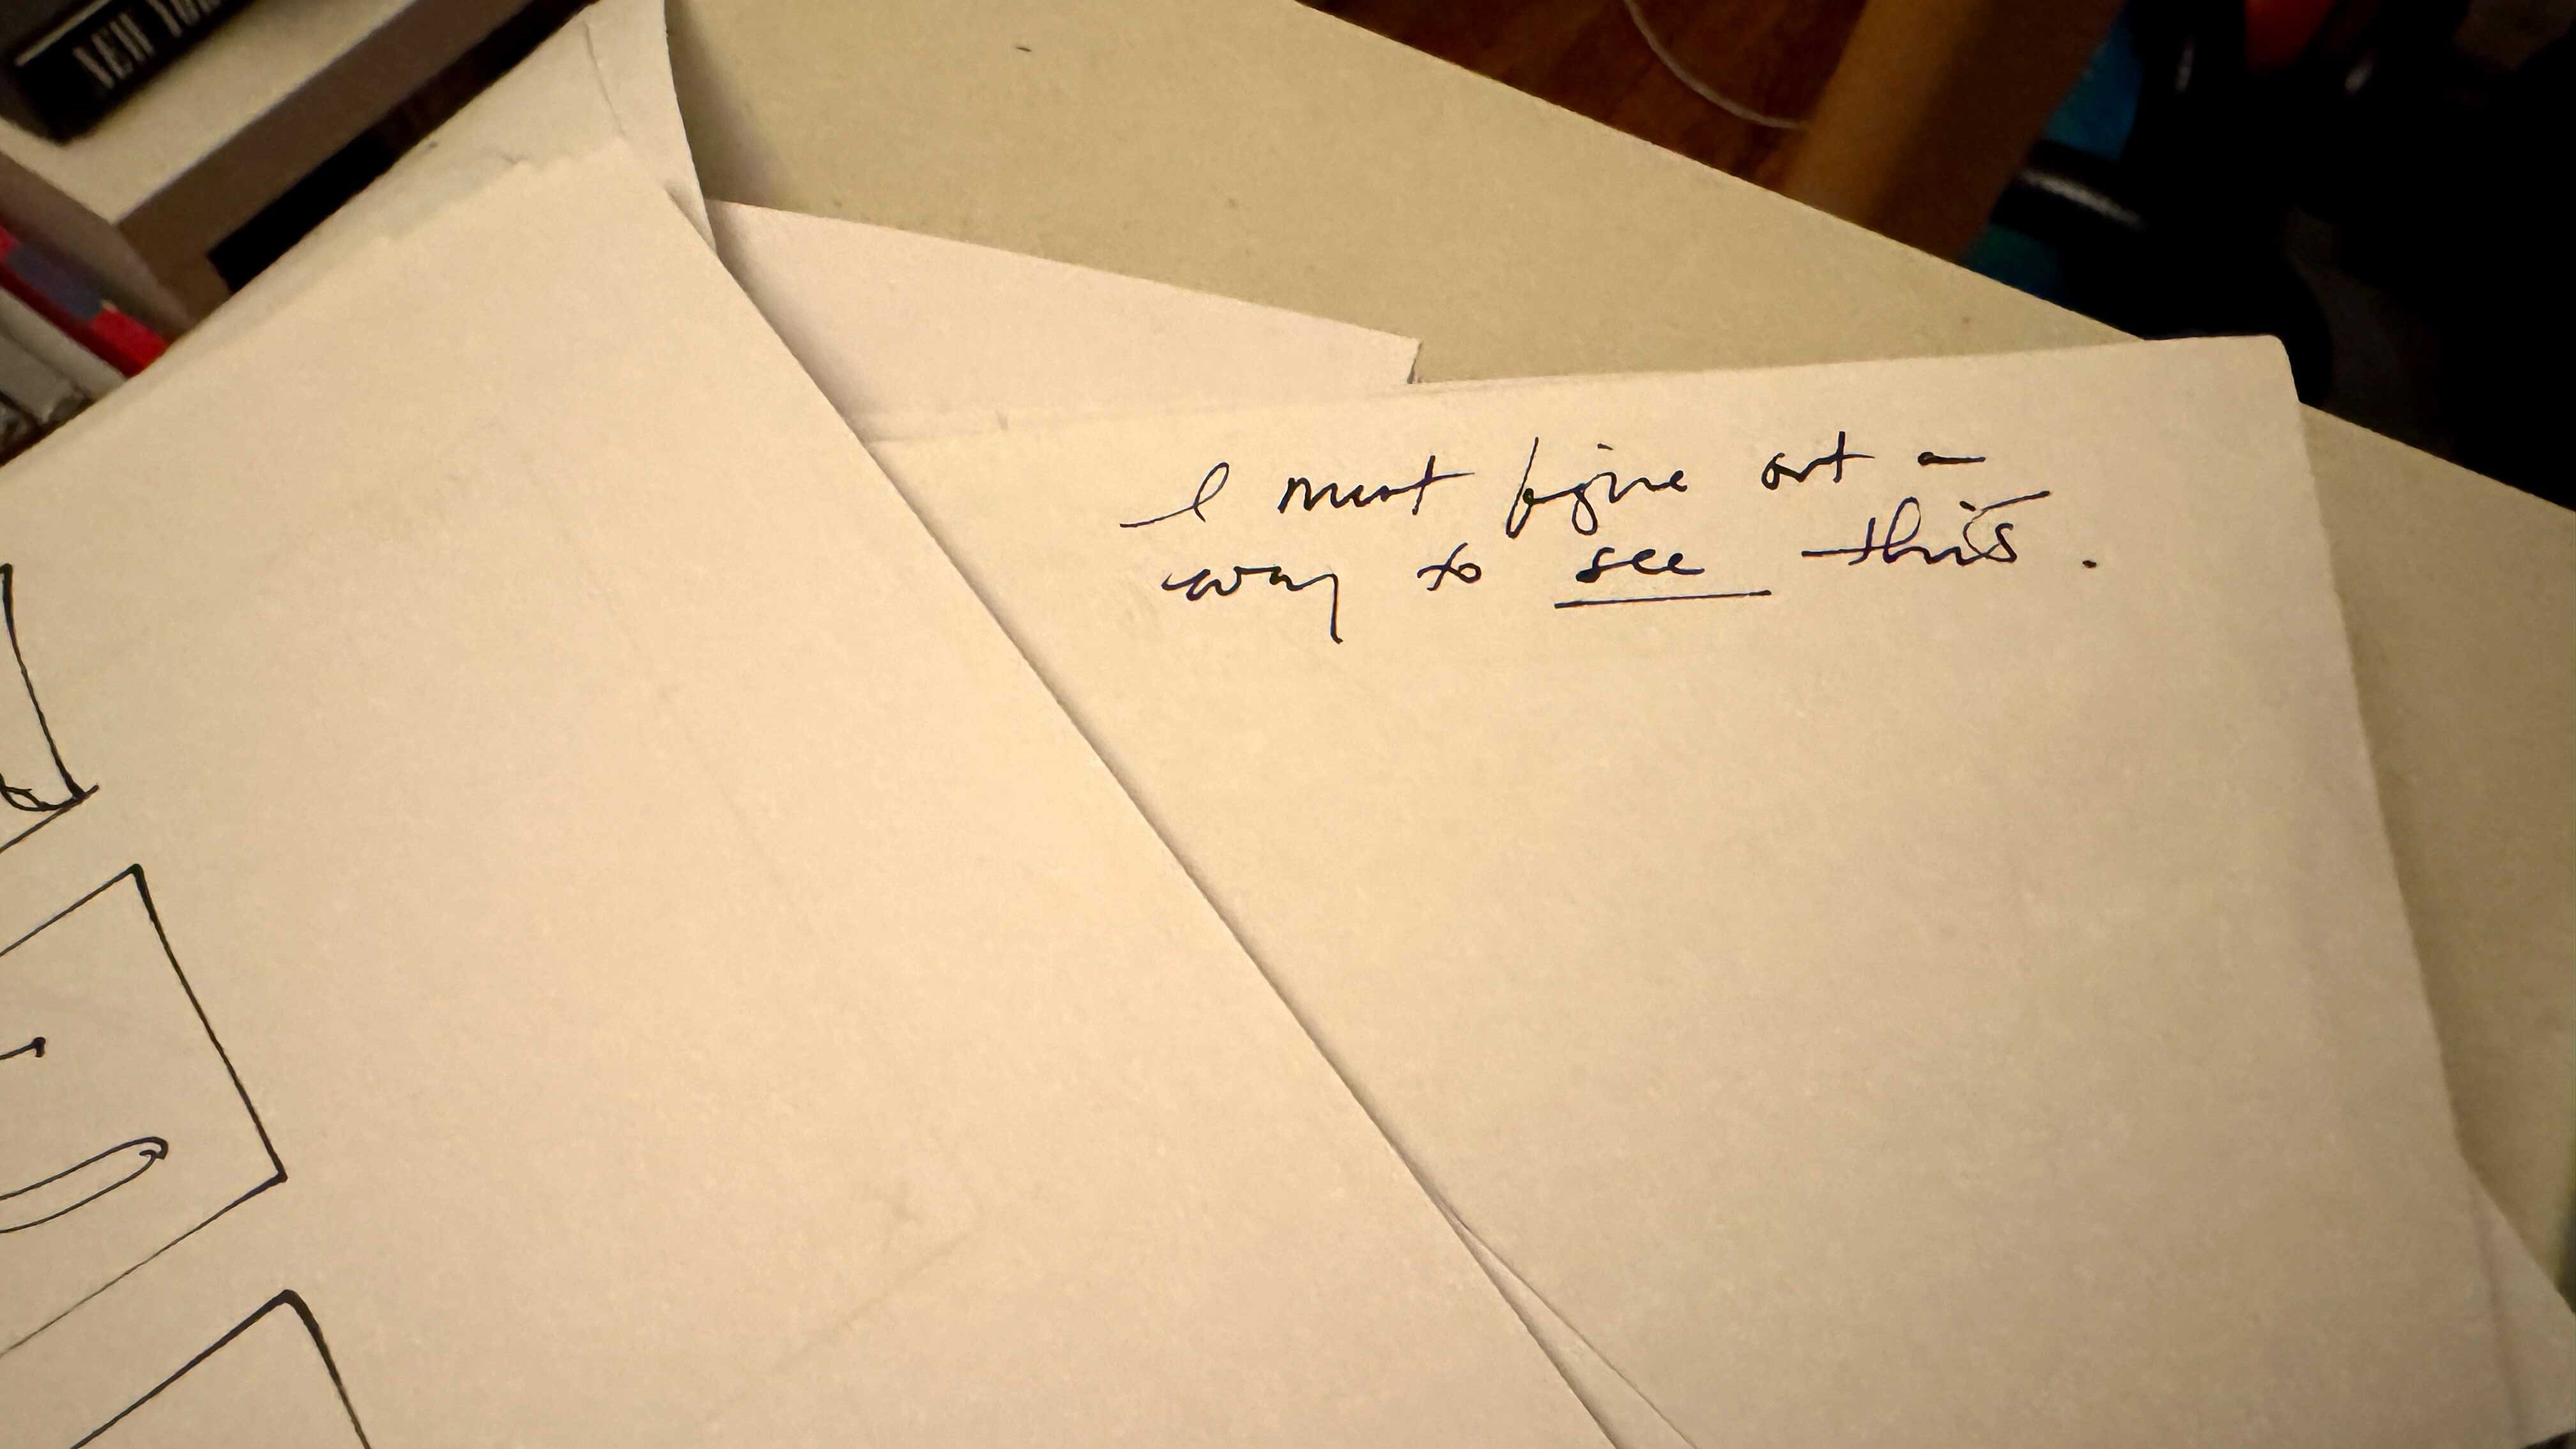 NEW YOR
I must figure out a
way to see this.